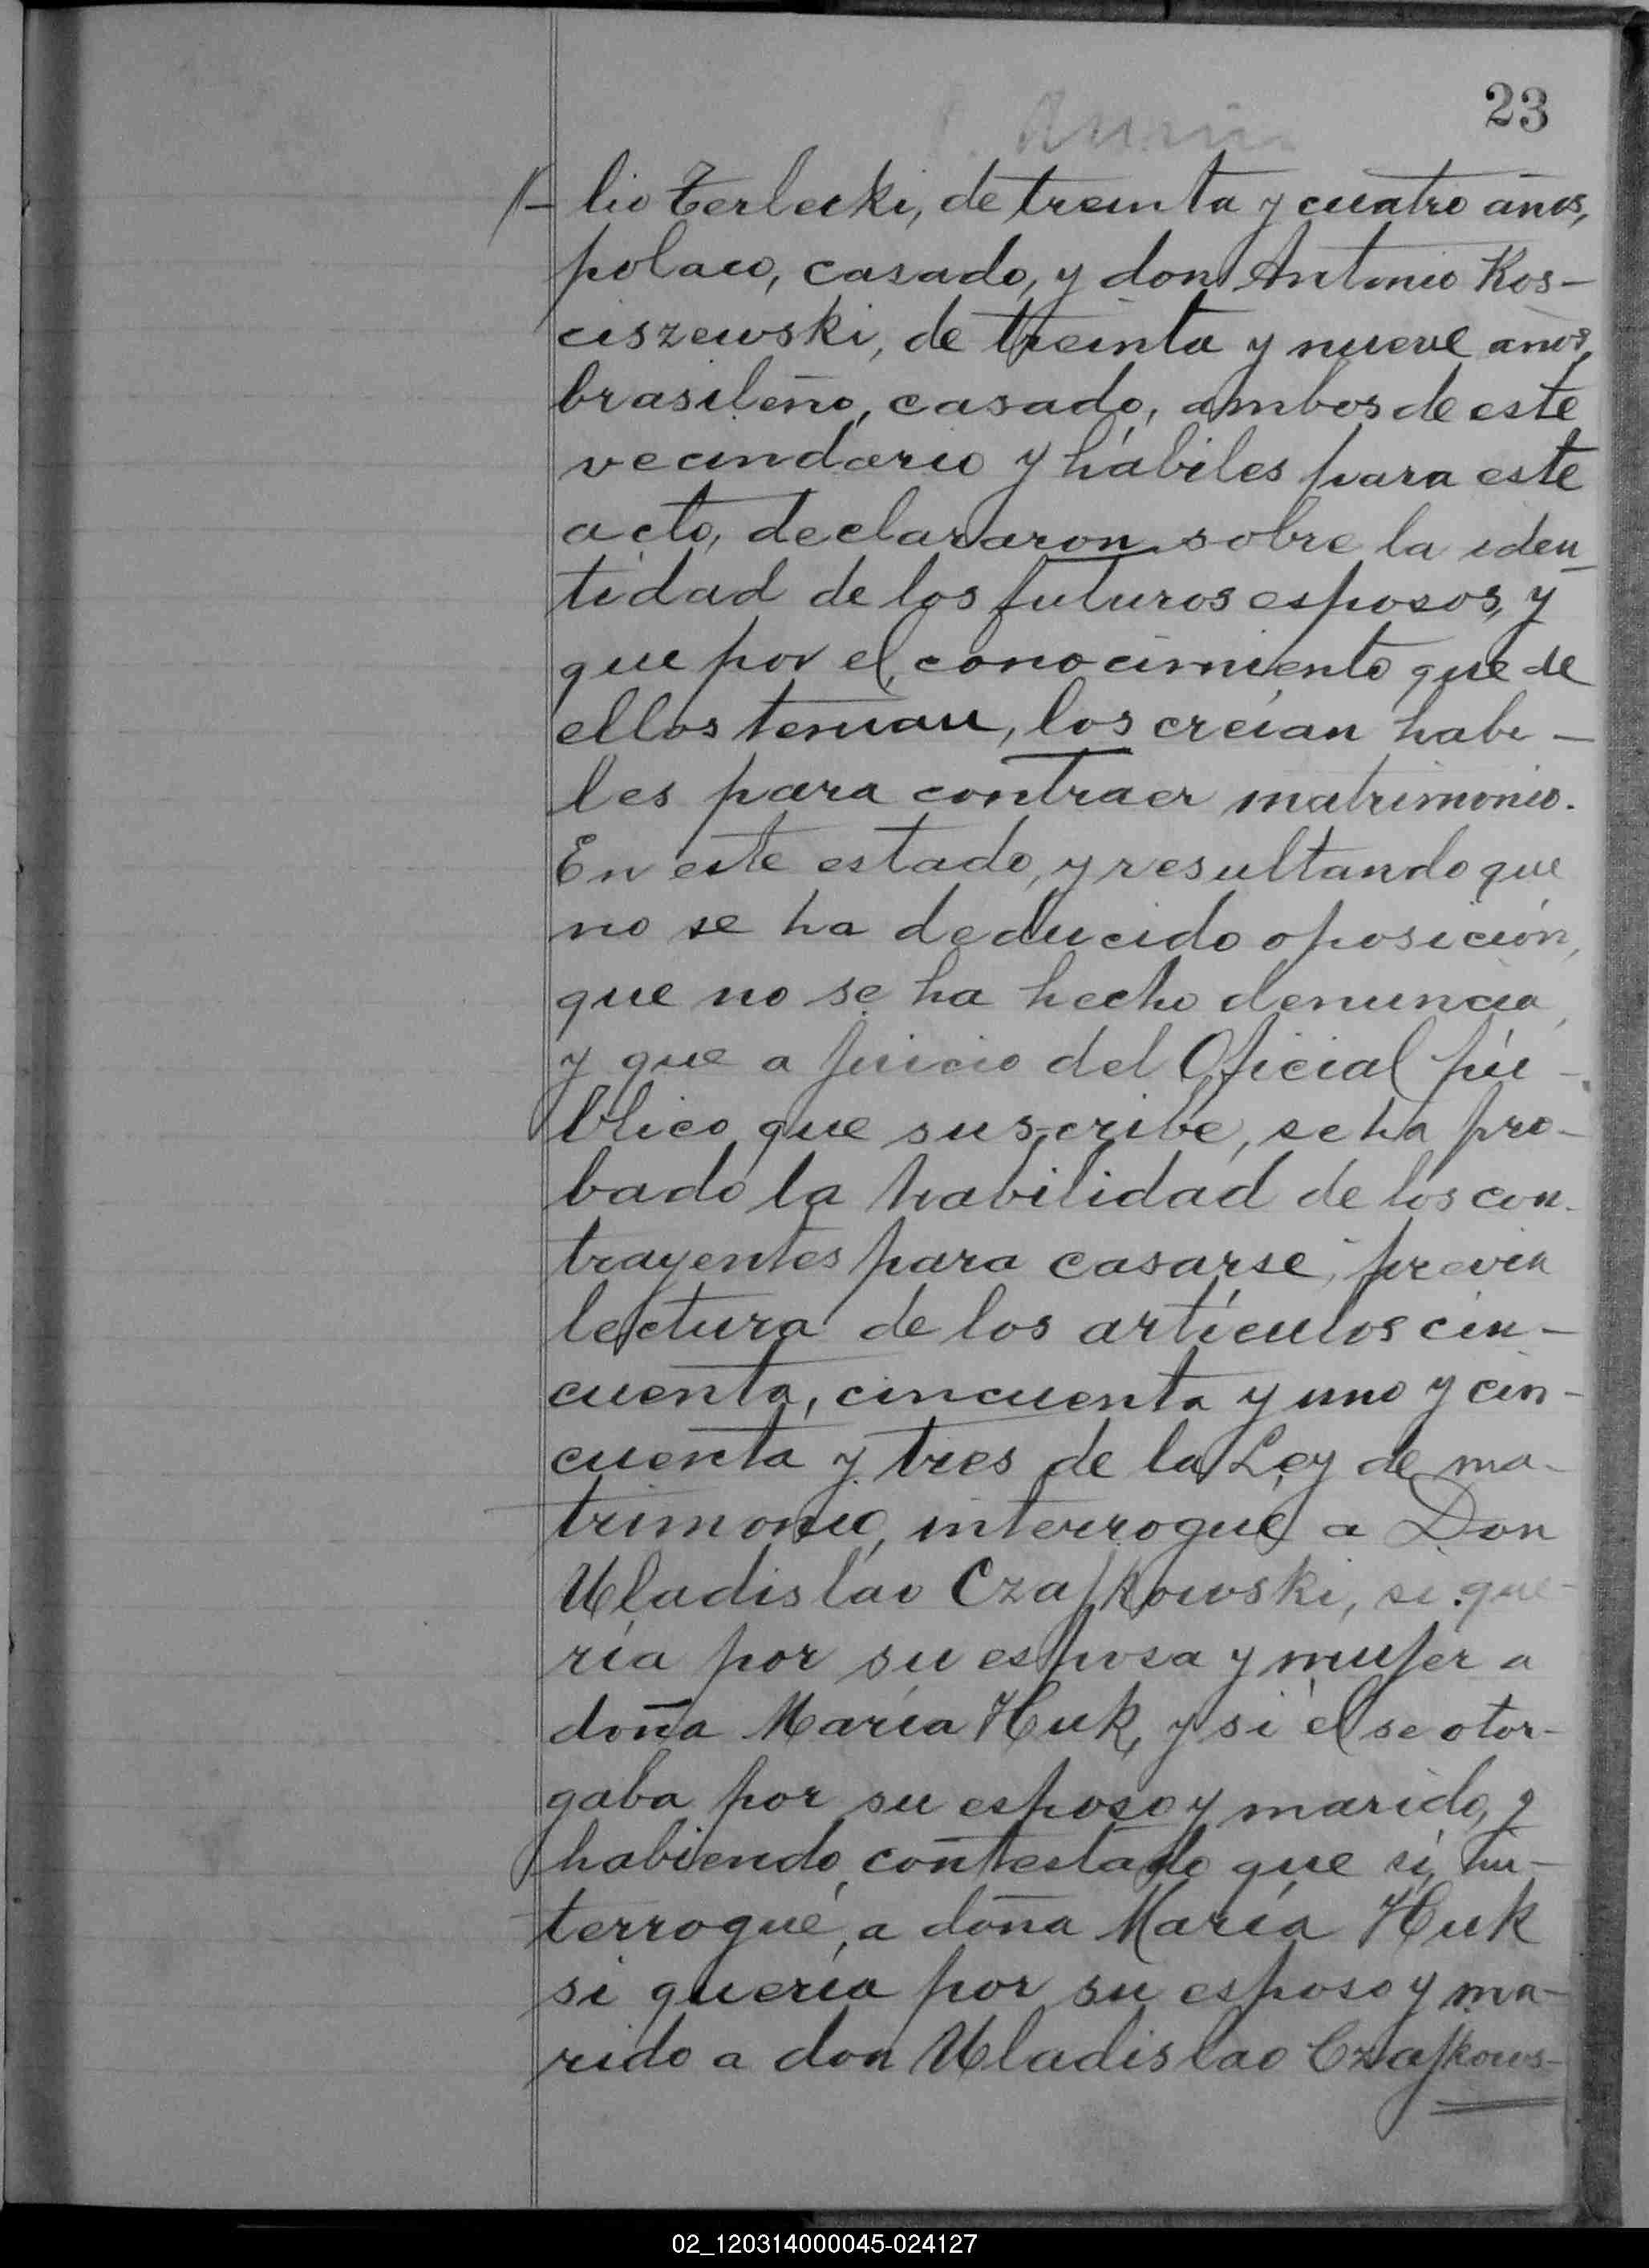 23
lio Terlecki, de treinta y cuatro años,
polaco, casado, y don Antonio Kos-
ciszewski, de treinta y nueve años,
brasileño, casado, ambos de este
vecindario y hábiles para este
acto, declararon sobre la iden-
tidad de los futuros esposos, y
que por el conocimiento que de
ellos tenian, los creían habi-
les para contraer matrimonio.
En este estado, y resultando que
no se ha deducido oposición,
que no se ha hecho denuncia,
y que a juicio del Oficial pú-
blico que suscribe, se ha pro-
bado la habilidad de los con-
trayentes para casarse, previa
lectura de los artículos cin-
cuenta, cincuenta y uno y cin-
cuenta y tres de la Ley de ma-
trimonio, interrogué a Don
Uladislao Czajkowski, si que-
ría por su esposa y mujer a
doña María Huk, y si él se otor-
gaba por su esposo y marido, y
habiendo contestado que si, in-
terrogué, a doña María Huk
si quería por su esposo y ma-
rido a don Uladislao Czajkows-
02_120314000045-024127